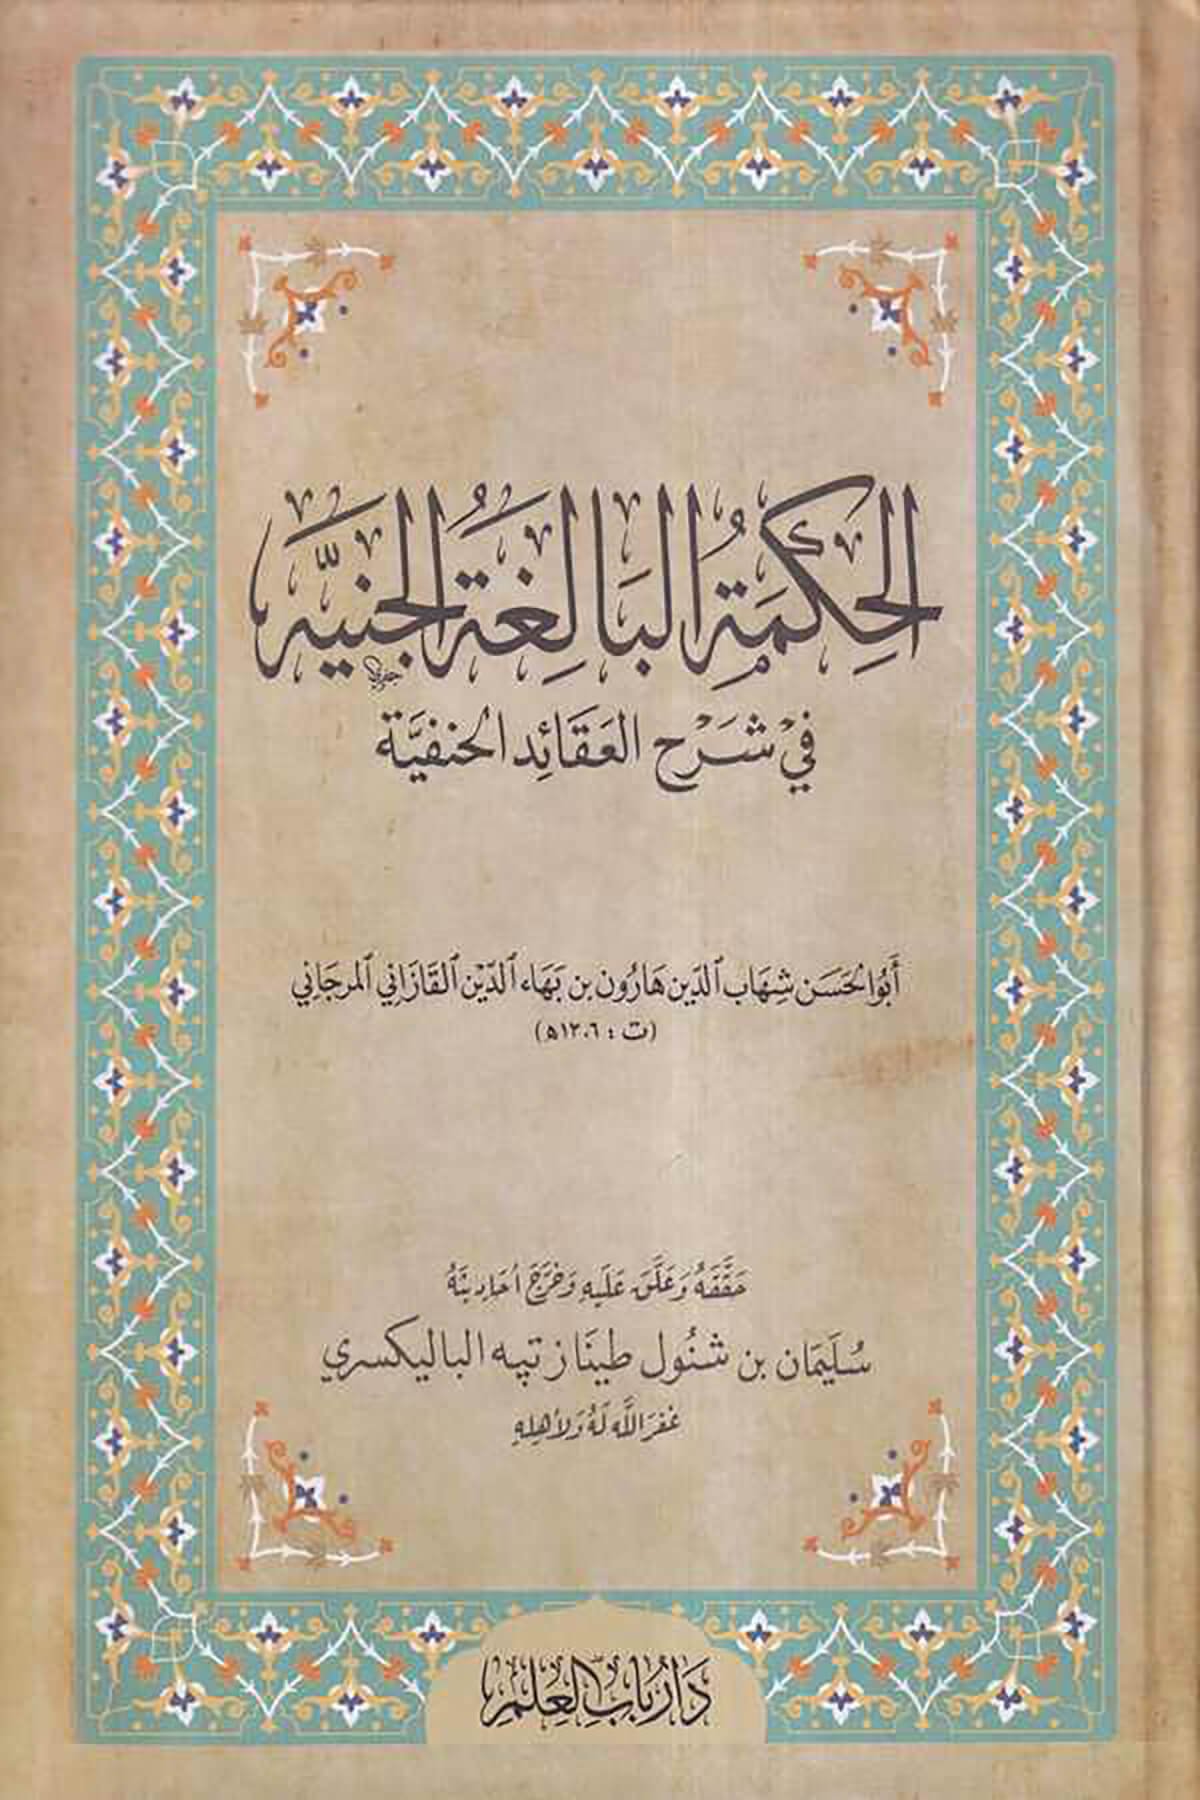 الحِكْمَةُ البَالِغَةُ الجَنِيَّه
فِيْ شَرْح العَقَائِد الحنفيَّة
أَبُو الحَسَن شِهَاب ٱلدّين هَارُون بن بَهَاء ٱلدّيْن ٱلقَازَاني ٱلمرجَاني
(ت : ١٢٠٦ه)
حَقَّقَهُ وَعَلَّقَ عَلَيهِ وَخَرَّجَ أحَادِيثَهُ
سُلَيمَان بن شنُول طينَاز تپه الباليكسري
غفَرَ اللَّه لَهُ وَلأهلِهِ
دَارُ بَابِ العِلمِ